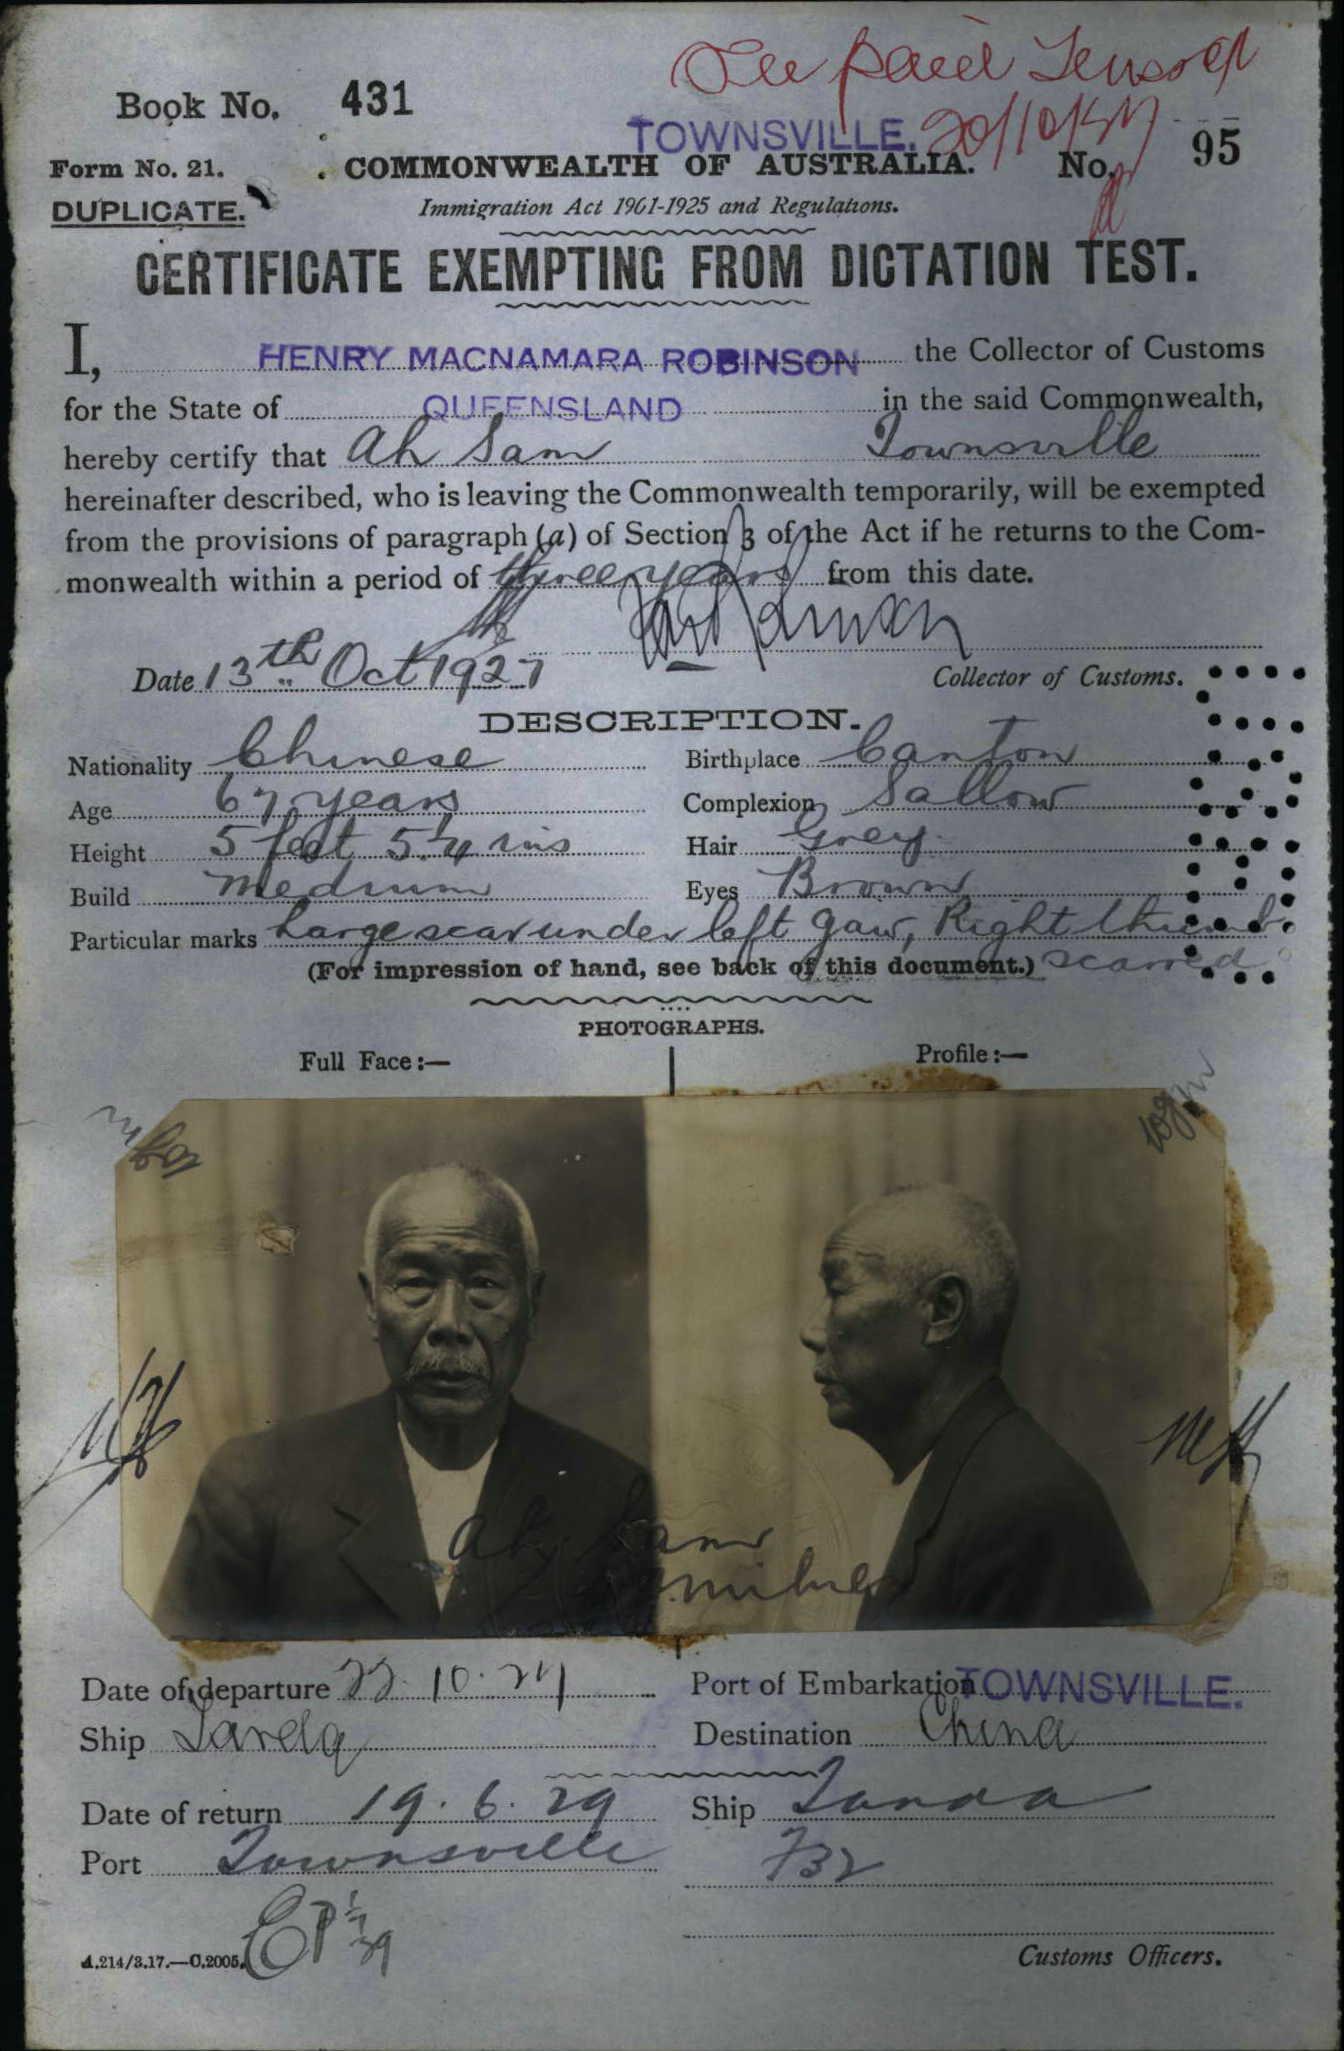 See paid
Book No. 431
TOWNSVILLE. 20/10/27
Form No. 21. COMMONWEALTH OF AUSTRALIA. No. 95
DUPLICATE. Immigration Act 1901-1925 and Regulations.
CERTIFICATE EXEMPTING FROM DICTATION TEST.
I, HENRY MACNAMARA ROBINSON the Collector of Customs
for the State of QUEENSLAND in the said Commonwealth,
hereby certify that Ah Sam Townsville
hereinafter described, who is leaving the Commonwealth temporarily, will be exempted
from the provisions of paragraph (a) of Section 3 of the Act if he returns to the Com-
monwealth within a period of three years from this date.
Date 13th Oct 1927 Collector of Customs.
DESCRIPTION.
Nationality Chinese Birthplace Canton
Age 67 years Complexion Sallow
Height 5 feet 5 1/4 ins Hair Grey
Build Medium Eyes Brown
Particular marks Large scar under left gaw, Right thumb
(For impression of hand, see back of this document.) scarred
PHOTOGRAPHS.
Full Face:— Profile:—
Ah Sam
Date of departure 22.10.27 Port of Embarkation TOWNSVILLE.
Ship Tanda Destination China
Date of return 19.6.29 Ship Tanda
Port Townsville
A.214/3.17.—C.2005. Customs Officers.